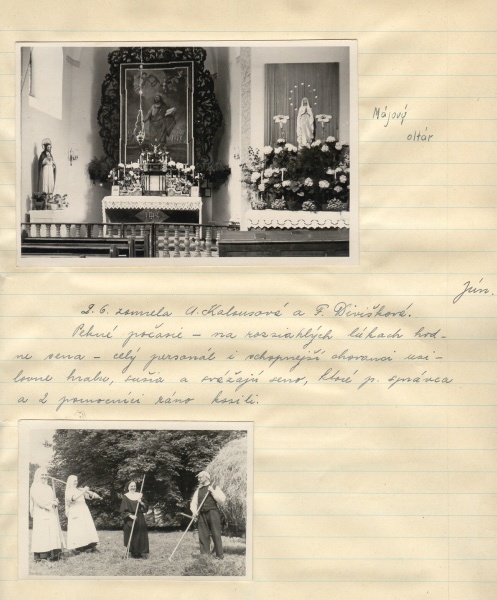 Májový
oltár
Jún.
2.6. zomrela A. Kalousová a F. Divišková.
Pekné počasie – na rozsiahlych lúkach hod-
ne sena – celý personál i schopnejší chovanci usi-
lovne hrabú, sušia a svážajú seno, ktoré p. správca
a 2 pomocníci ráno kosili.